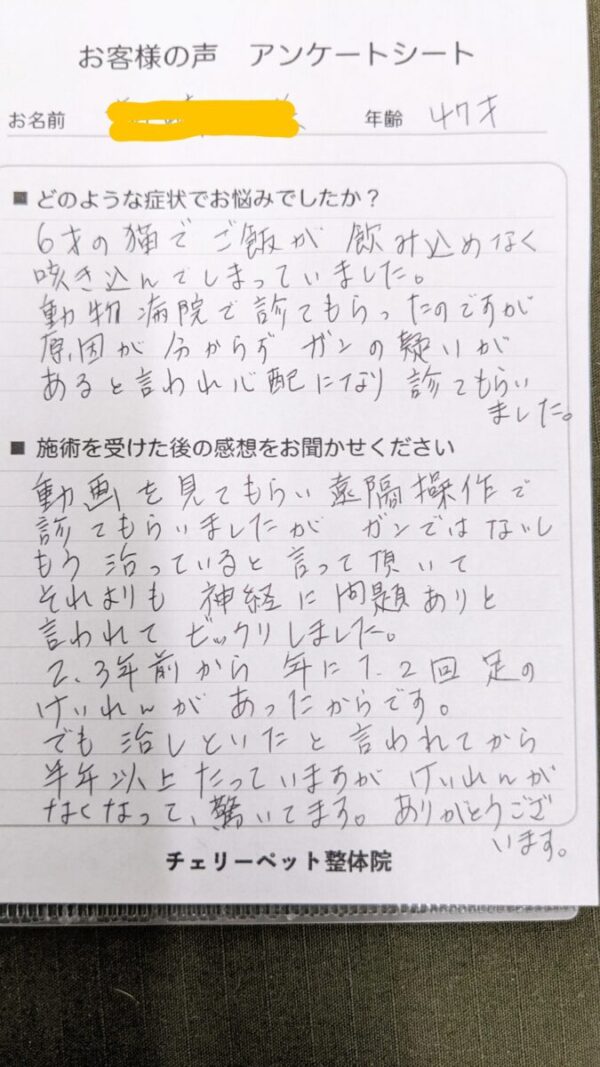 お客様の声　アンケートシート
お名前
年齢 47才
■ どのような症状でお悩みでしたか？
6才の猫で ご飯が 飲み込めなく
咳き込んでしまっていました。
動物病院で診てもらったのですが
原因が 分からず ガンの疑いが
あると言われ心配になり 診てもらい
ました。
■ 施術を受けた後の感想をお聞かせください
動画を見てもらい 遠隔操作で
診てもらいましたが ガンではないし
もう 治っていると 言って頂いて
それよりも 神経に 問題ありと
言われて ビックリしました。
2、3年前から 年に 1.2回 足の
けいれんが あったからです。
でも 治しといたと 言われてから
半年以上たっていますが けいれんが
なくなって、驚いてます。ありがとうござ
います。
チェリーペット整体院